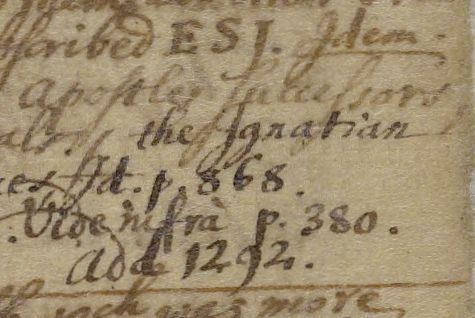 scribed ESJ. Idem.
Apostles successors
the Ignatian
Id. p. 868.
Vide infrà p. 380.
Add 1292.
was more